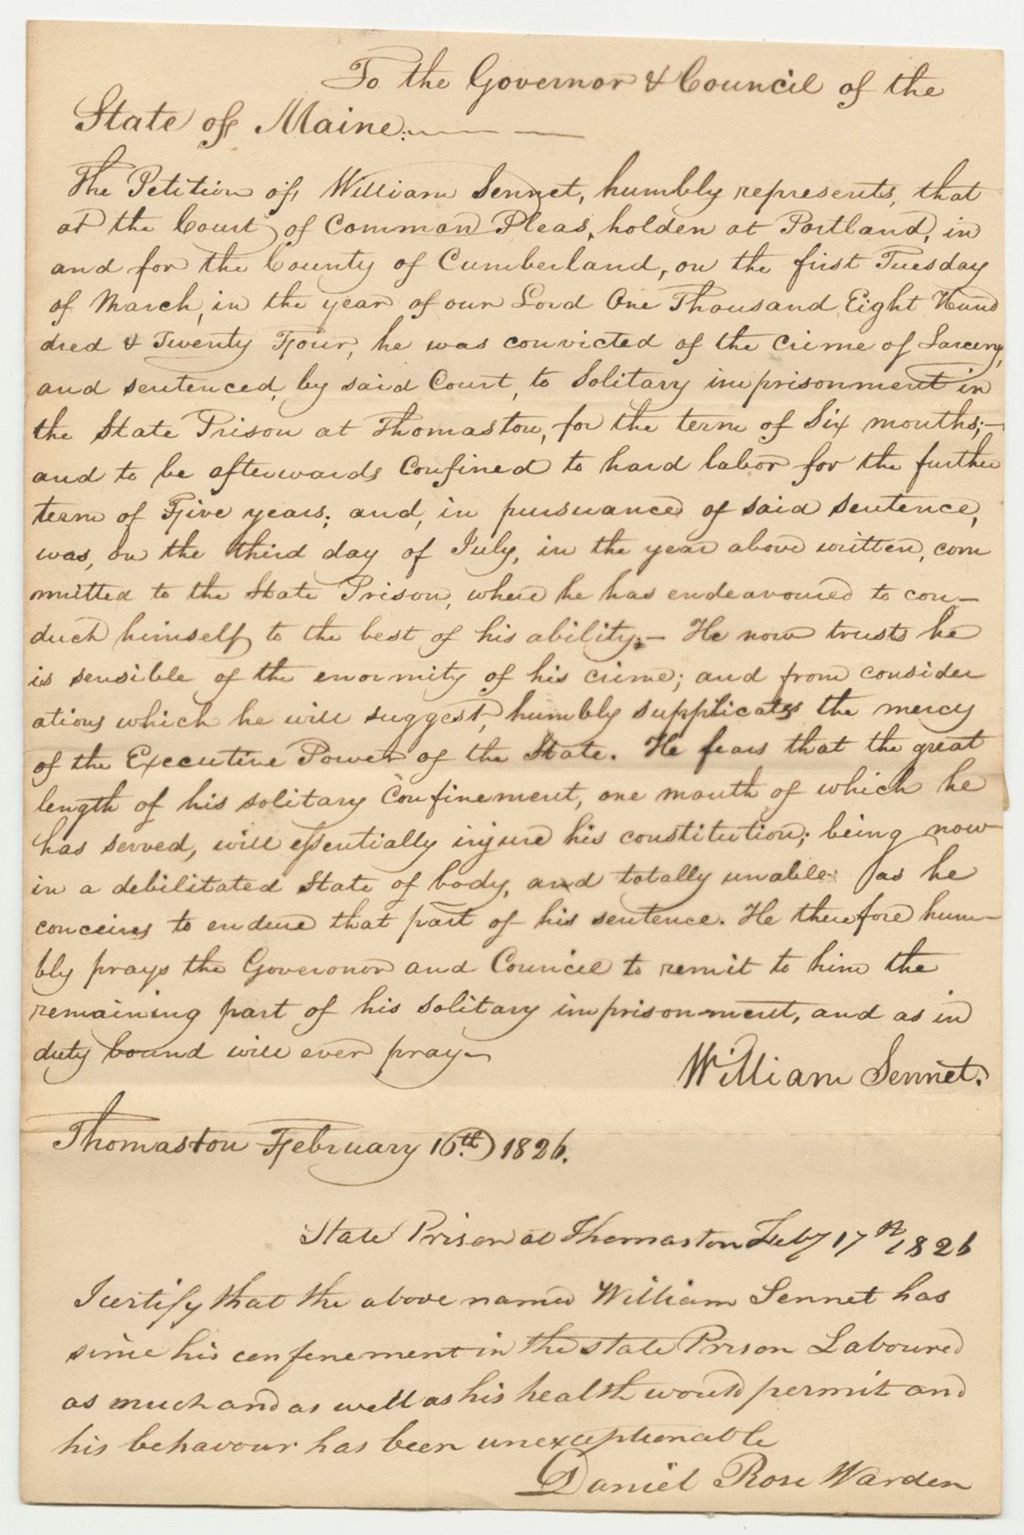 To the Governor & Council of the
State of Maine.
The Petition of William Sennet, humbly represents, that
at the Court of Common Pleas, holden at Portland, in
and for the County of Cumberland, on the first Tuesday
of March, in the year of our Lord One Thousand Eight Hund
dred & Twenty Four, he was convicted of the crime of Larceny,
and sentenced, by said Court, to Solitary imprisonment in
the State Prison at Thomaston, for the term of Six months;—
and to be afterwards Confined to hard labor for the further
term of Five years; and, in pursuance of said sentence,
was, on the third day of July, in the year above written, com
mitted to the State Prison, where he has endeavoured to con-
duct himself to the best of his ability;— He now trusts he
is sensible of the enormity of his crime; and from consider
ations which he will suggest, humbly supplicates the mercy
of the Executive Power of the State. He fears that the great
length of his solitary Confinement, one month of which he
has served, will essentially injure his constitution; being now
in a debilitated State of body, and totally unable as he
conceives to endure that part of his sentence. He therefore hum-
bly prays the Goveronor and Council to remit to him the
remaining part of his Solitary imprison-ment, and as in
duty bound will ever pray—
William Sennet.
Thomaston February 16th 1826.
State Prison at Thomaston Feby 17th 1826
I certify that the above named William Sennet has
since his confenement in the State Prison Laboured
as much and as well as his health would permit and
his behavour has been unexceptionable
Daniel Rose Warden